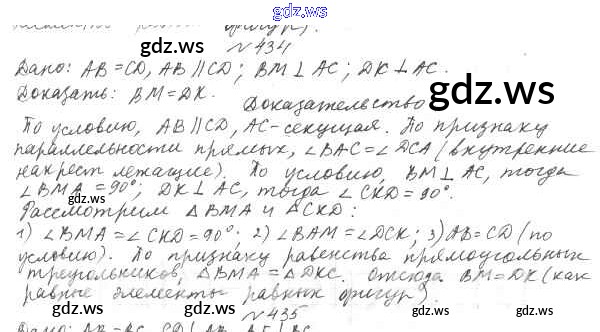 gdz.ws
равных фигур).
№434
Дано: AB=CD, AB∥CD; BM⊥AC; DK⊥AC.
gdz.ws gdz.ws
Доказать: BM=DK.
gdz.ws
Доказательство
По условию, AB∥CD, AC-секущая. По признаку
параллельности прямых, ∠BAC=∠DCA (внутренние
накрест лежащие). По условию, BM⊥AC, тогда
gdz.ws gdz.ws
∠BMA=90°; DK⊥AC, тогда ∠CKD=90°.
Рассмотрим △BMA и △CKD:
1) ∠BMA=∠CKD=90°; 2) ∠BAM=∠DCK; 3) AB=CD (по
условию). По признаку равенства прямоугольных
треугольников, △BMA=△DKC. Отсюда BM=DK (как
gdz.ws gdz.ws
равные элементы равных фигур).
№435
Дано: AB=AC,
gdz.ws